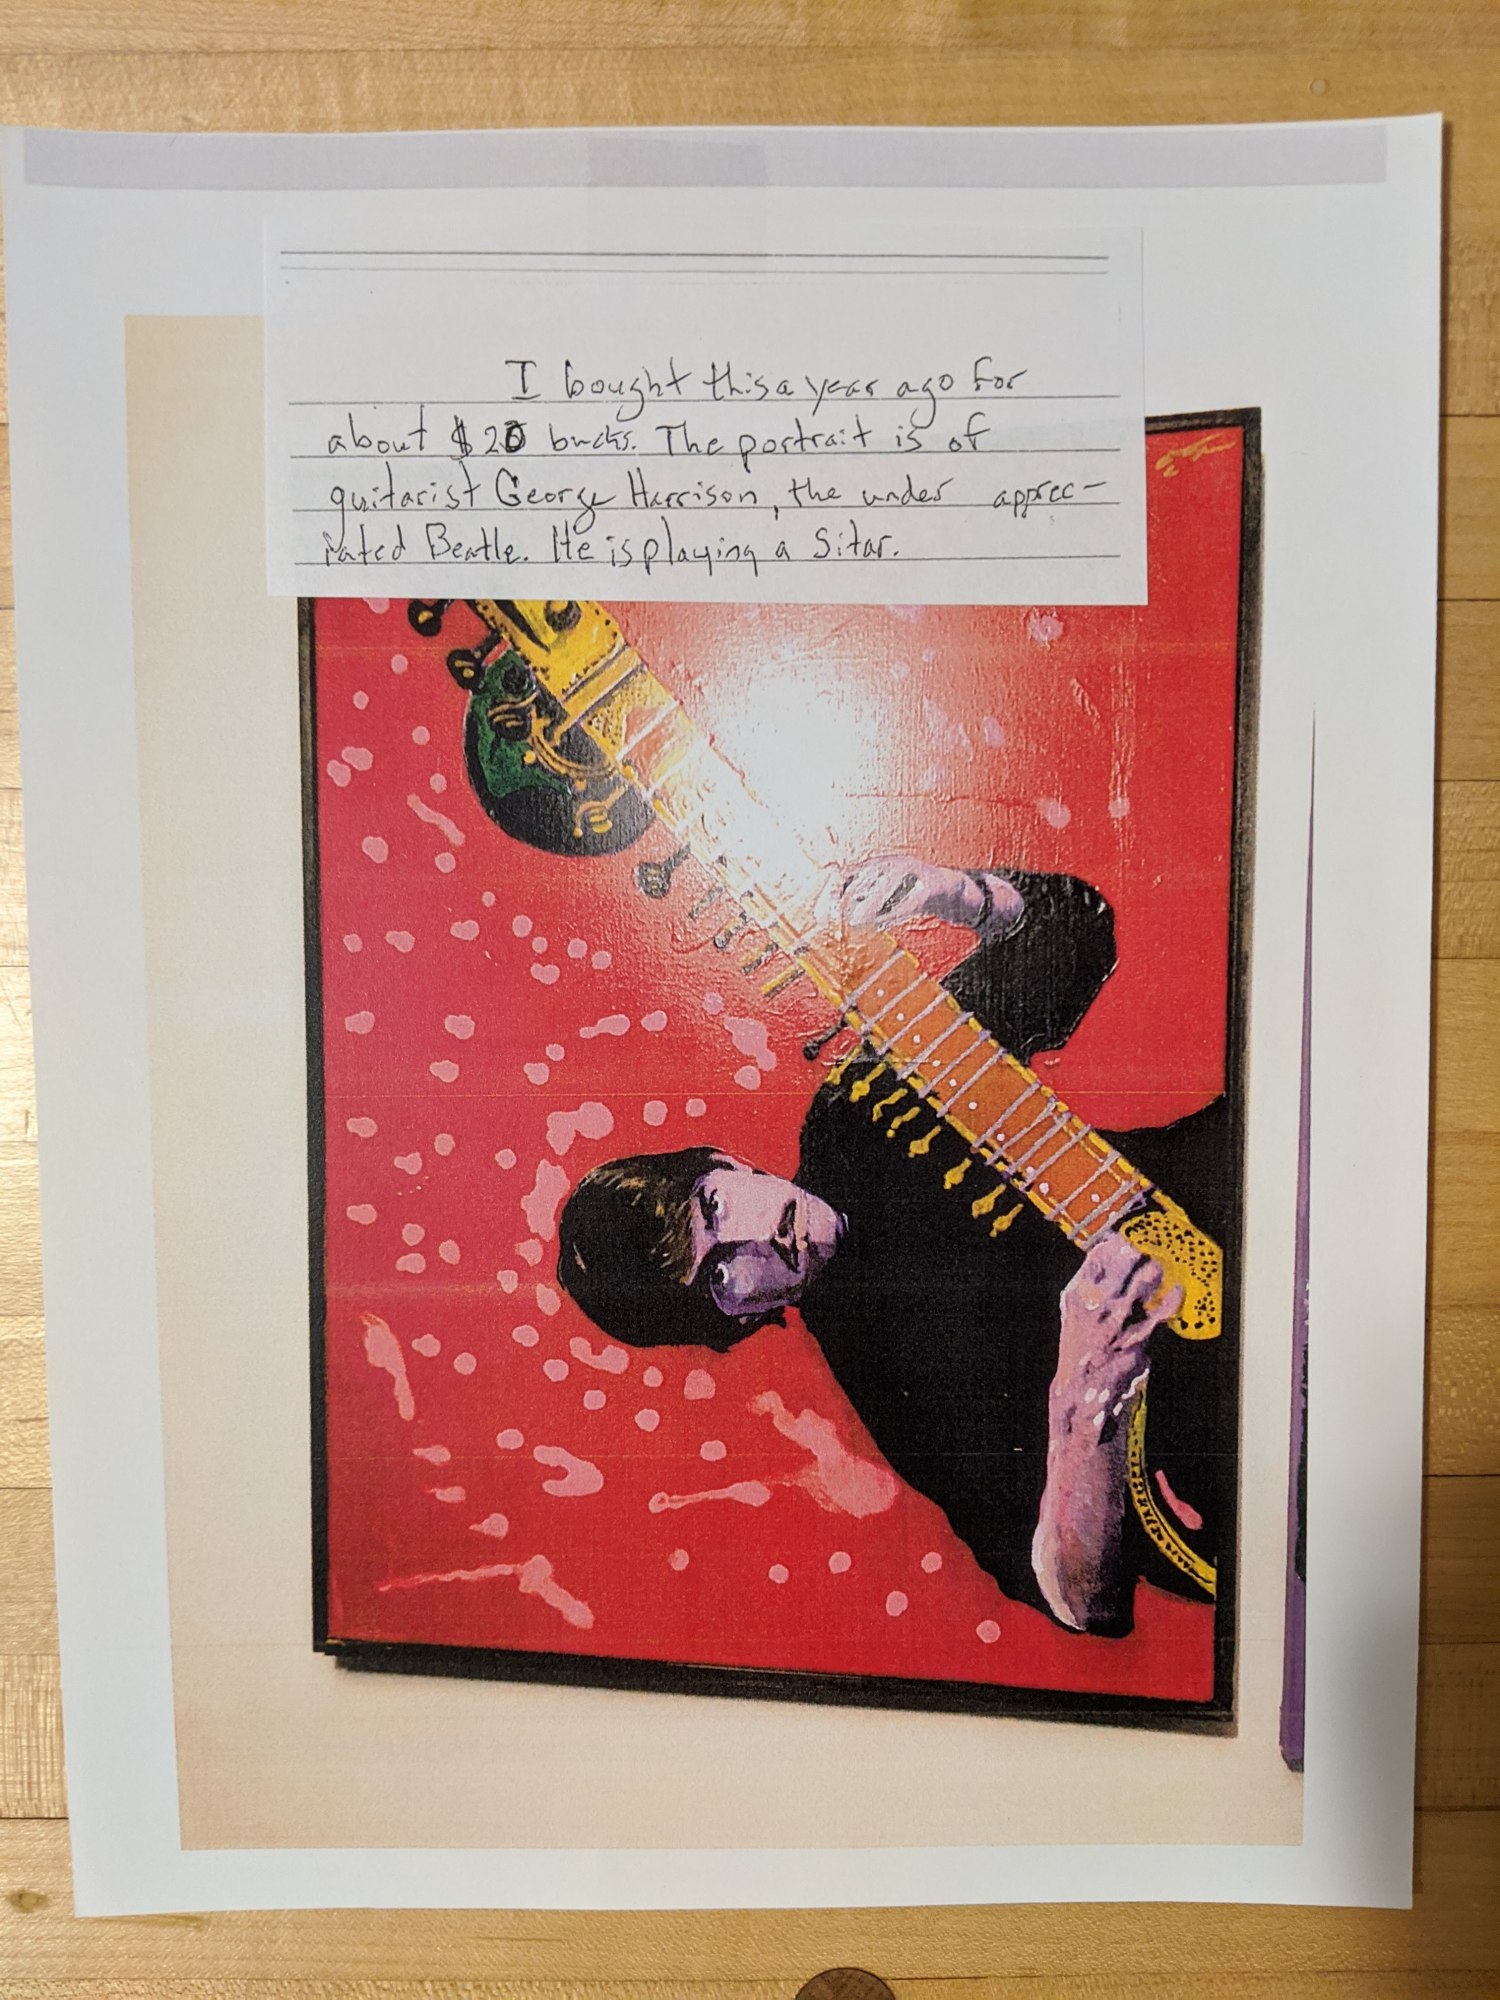 I bought this a year ago for
about $20 bucks. The portrait is of
guitarist George Harrison, the under apprec-
iated Beatle. He is playing a Sitar.